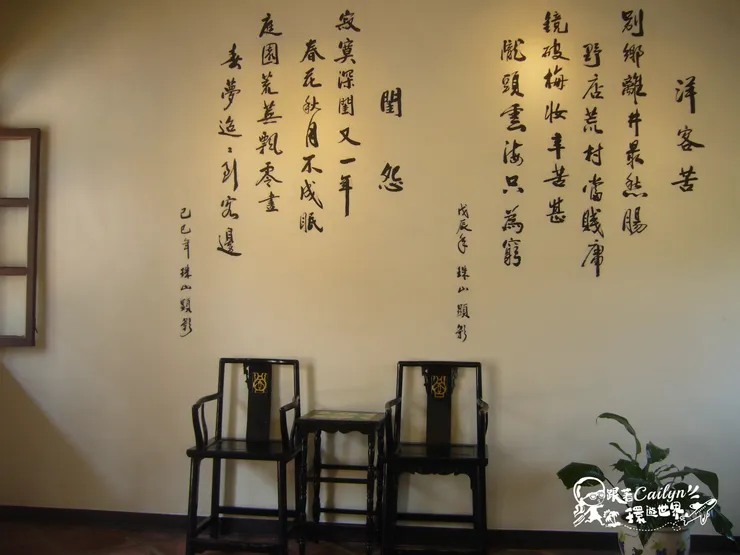 洋客苦
別鄉離井最愁腸
野店荒村當賤庸
鏡破梅妝辛苦甚
隴頭雲海只為窮
戊辰年 珠山顯影
閨怨
寂寞深閨又一年
春花秋月不成眠
庭園荒蕪飄零盡
春夢迢迢到客邊
己巳年 珠山顯影
跟著Cailyn
環遊世界